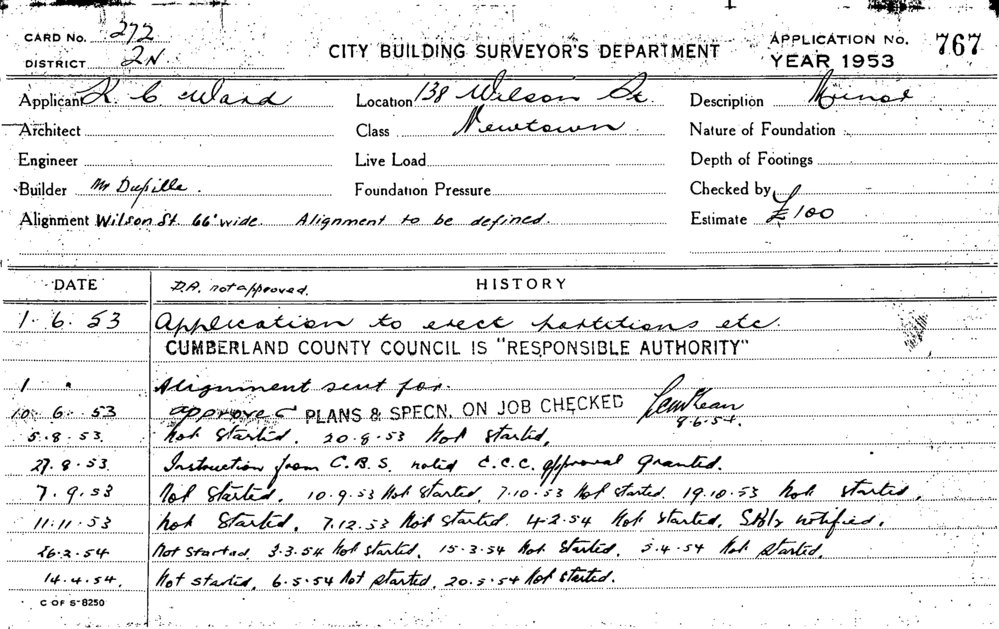 CARD No. 272
DISTRICT 2N
CITY BUILDING SURVEYOR'S DEPARTMENT
APPLICATION No. 767
YEAR 1953
Applicant K C Ward
Location 138 Wilson St.
Description Minor
Architect
Class Newtown
Nature of Foundation
Engineer
Live Load
Depth of Footings
Builder Mr
Foundation Pressure
Checked by
Alignment Wilson St. 66' wide. Alignment to be defined.
Estimate £100
DATE
D.A. not approved.
HISTORY
1. 6. 53 Application to erect partitions etc.
CUMBERLAND COUNTY COUNCIL IS "RESPONSIBLE AUTHORITY"
1 " Alignment sent for.
10. 6. 53 approved PLANS & SPECN. ON JOB CHECKED 8.6.54.
5.8.53. Not Started. 20.8.53 Not Started.
27.8.53. Instruction from C.B.S. noted C.C.C. approval granted.
7.9.53 Not Started. 10.9.53 Not Started. 7.10.53 Not Started. 19.10.53 Not started.
11.11.53 Not Started. 7.12.53 Not Started. 4.2.54 Not Started. notified.
26.2.54 Not Started. 3.3.54 Not started. 15.3.54 Not Started. 5.4.54 Not Started.
14.4.54. Not started. 6.5.54 Not started. 20.5.54 Not started.
C OF S-8250